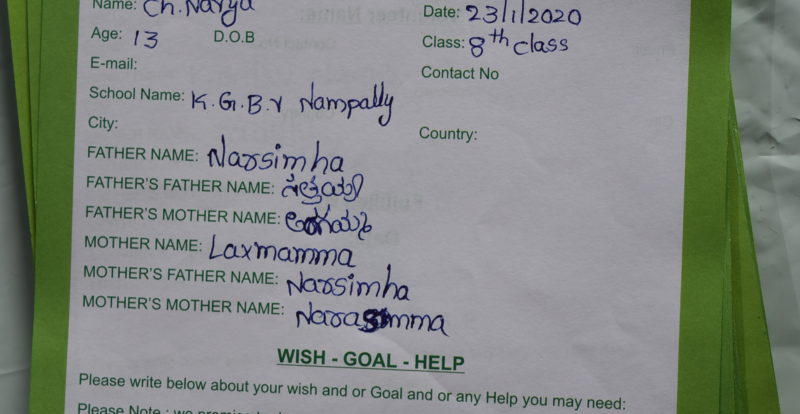 Name: Ch. Navya Date: 23/1/2020
Age: 13 D.O.B Class: 8th class
E-mail: Contact No
School Name: K.G.B.V Nampally
City: Country:
FATHER NAME: Narsimha
FATHER'S FATHER NAME:
FATHER'S MOTHER NAME:
MOTHER NAME: Laxmamma
MOTHER'S FATHER NAME: Narsimha
MOTHER'S MOTHER NAME: Narasimma
WISH - GOAL - HELP
Please write below about your wish and or Goal and or any Help you may need:
Please Note : we